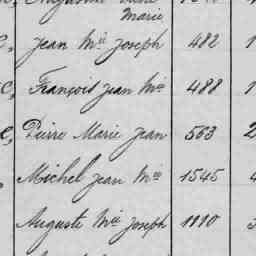 Marie
Jean Mie Joseph 482 1
François Jean Mie 488 1
Pierre Marie Jean 563 2
Michel Jean Mie 1545 4
Auguste Mie Joseph 1110 3